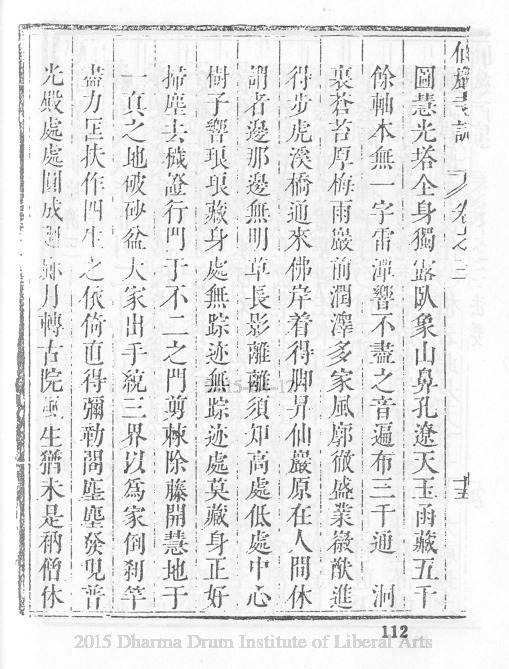 仙巖寺誌 卷之三 十三
圖慧光塔全身獨露臥象山鼻孔遼天玉函藏五千
餘軸本無一字雷潭響不盡之音遍布三千通 洞
裏蒼苔厚梅雨巖前潤澤多家風廓徹盛業嶷猷進
得步虎溪橋通來佛岸着得脚昇仙巖原在人間休
謂者邊那邊無明草長影離離須知高處低處中心
樹子響琅琅藏身處無踪迹無踪迹處莫藏身正好
掃塵去穢證行門于不二之門剪棘除藤開慧地于
一真之地破砂盆大家出手統三界以爲家倒刹竿
盡力匡扶作四生之依倚直得彌勒閣塵塵發現普
光殿處處圓成月轉古院風生猶未是衲僧休
112
2015 Dharma Drum Institute of Liberal Arts